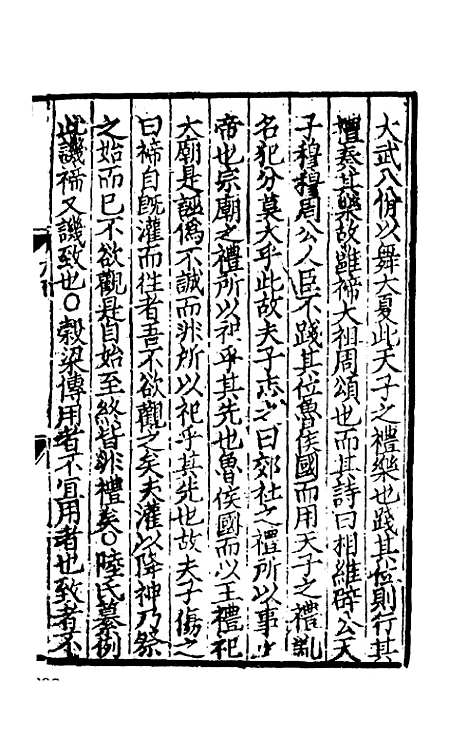 大武八佾以舞大夏此天子之禮樂也踐其位則行其
禮奏其樂故雖禘大祖周頌也而其詩曰相維辟公天
子穆穆周公人臣不踐其位魯侯國而用天子之禮亂
名犯分莫大乎此故夫子志之曰郊社之禮所以事上
帝也宗廟之禮所以祀乎其先也魯侯國而以王禮祀
大廟是誣僞不誠而非所以祀乎其先也故夫子傷之
曰禘自旣灌而徃者吾不欲觀之矣夫灌以降神乃祭
之始而已不欲觀是自始至終皆非禮矣〇陸氏纂例
此譏禘又譏致也〇榖梁傳用者不宜用者也致者不